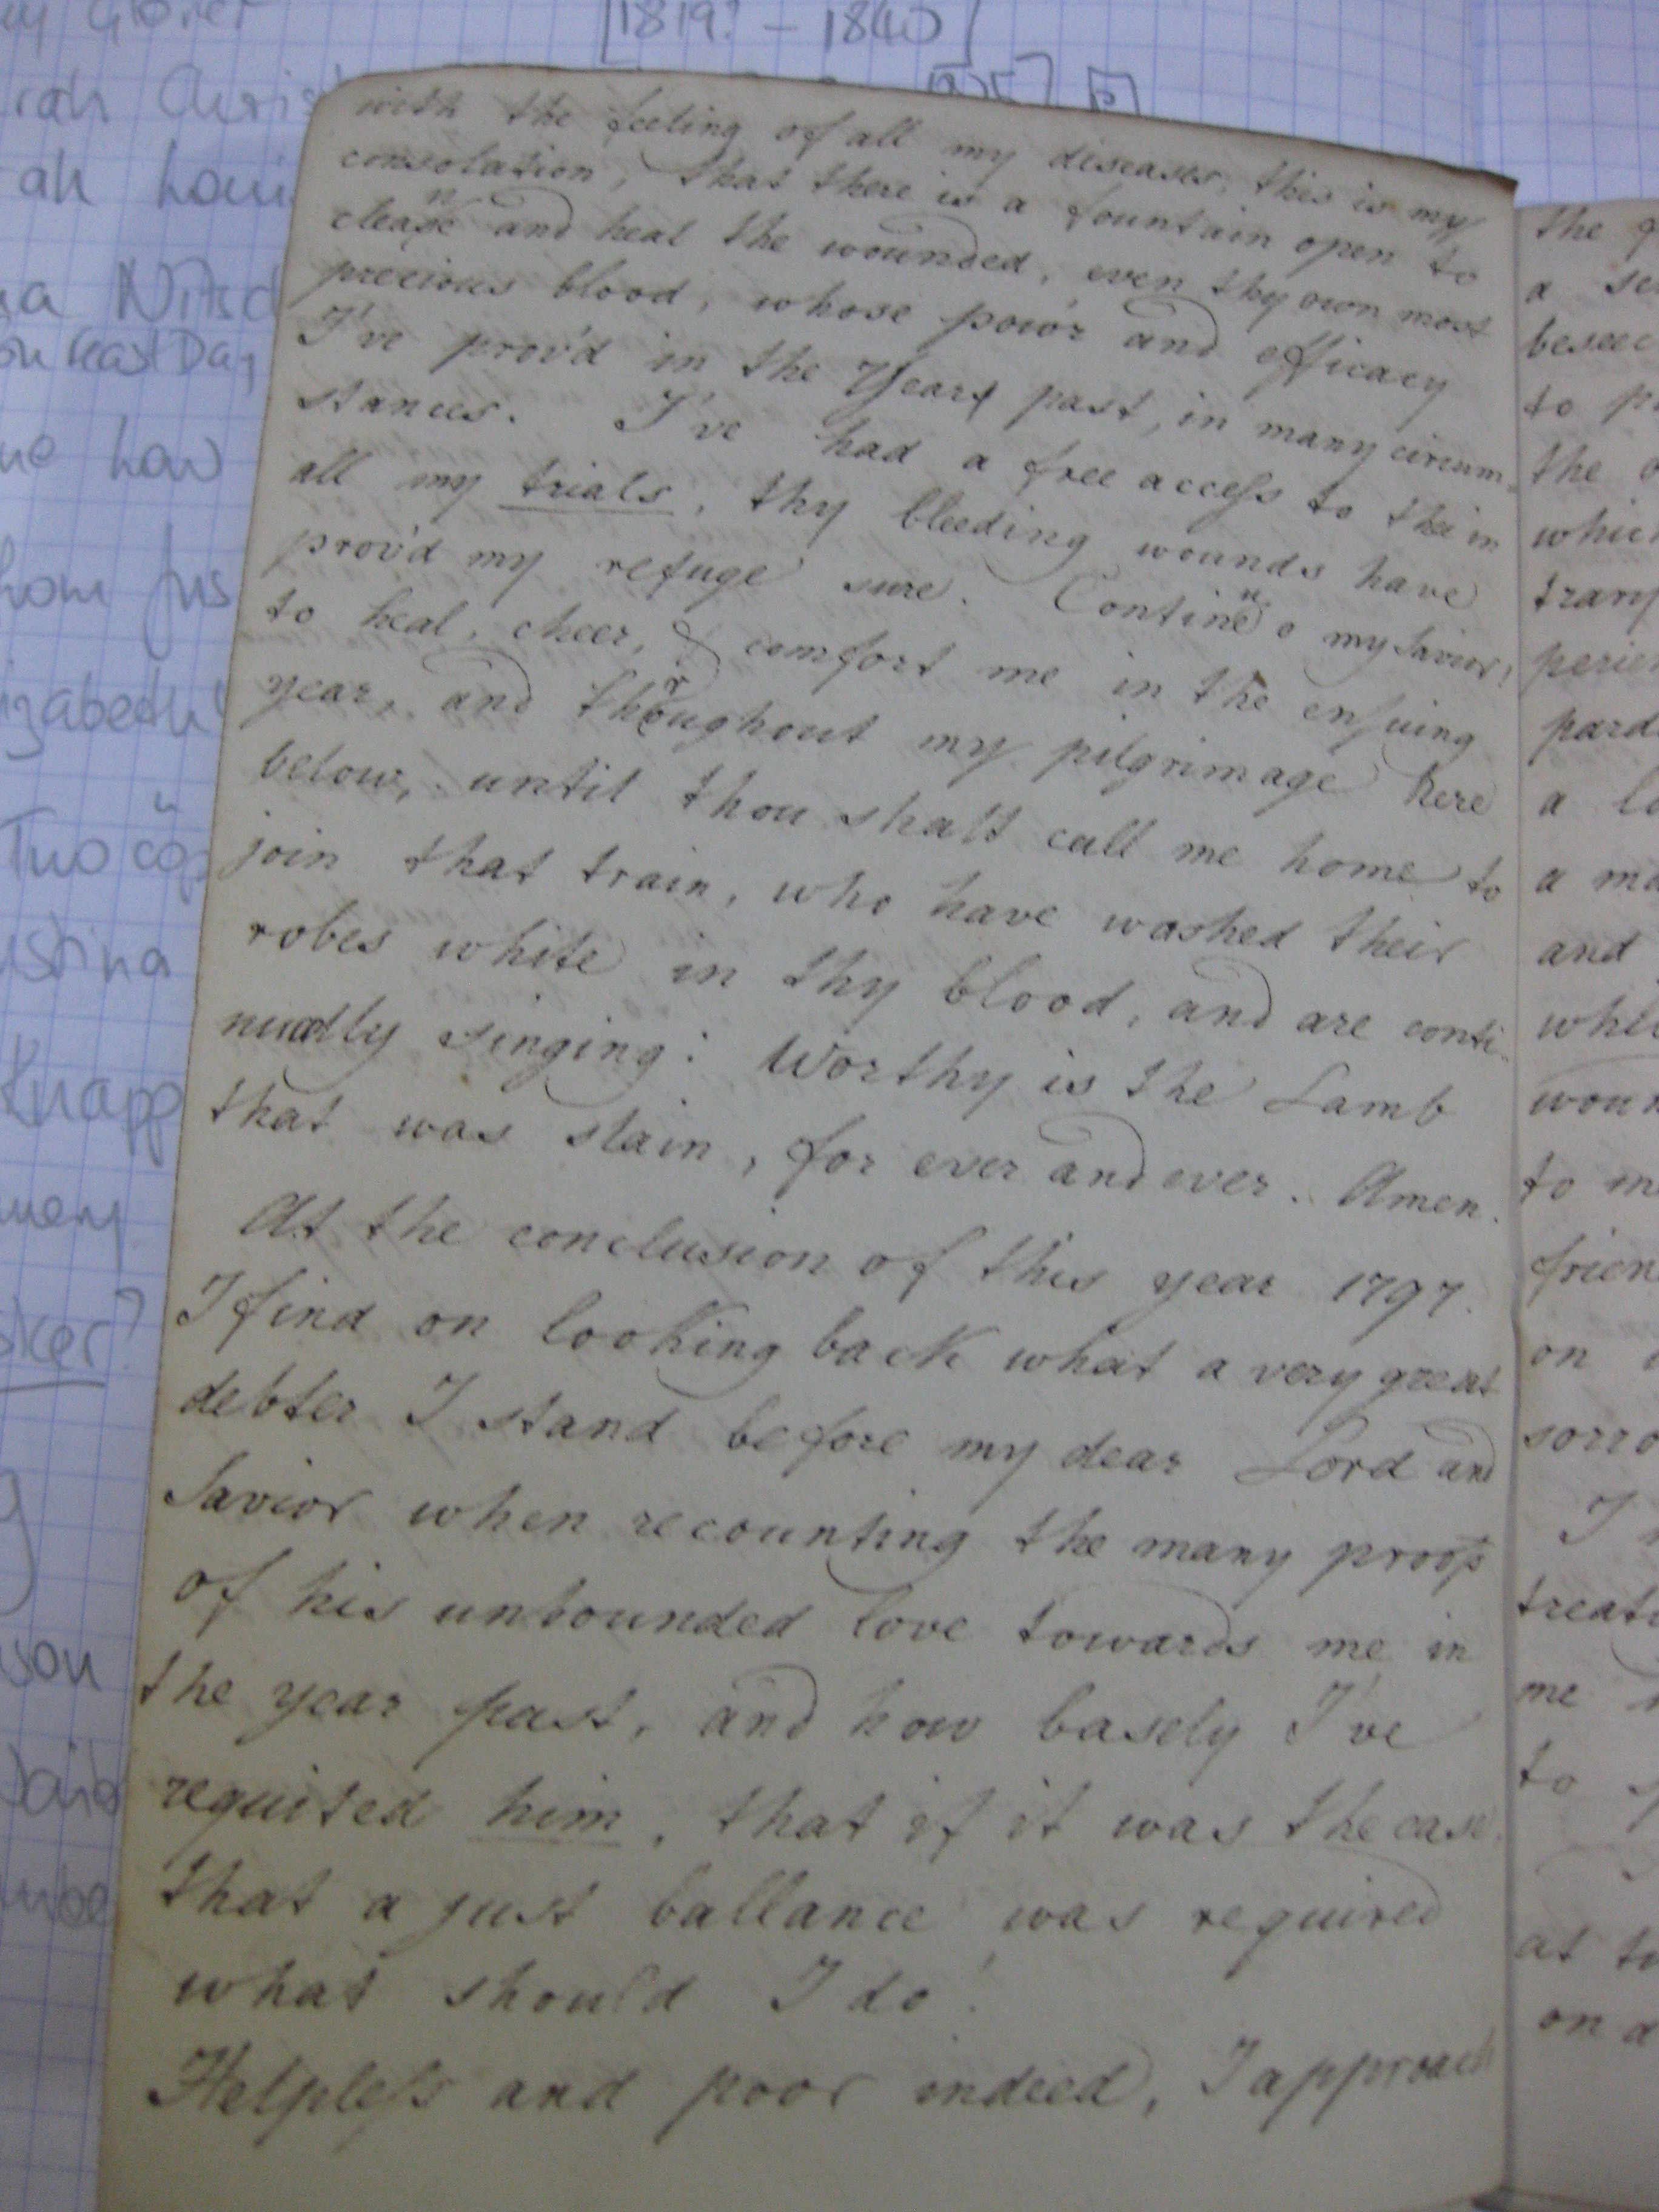 [1819? – 1840]
with the feeling of all my diseases, this is my
consolation, that there is a fountain open to
cleanse and heal the wounded, even thy own most
precious blood, whose pow'r and efficacy
I've prov'd in the Years past, in many circum-
stances. I've had a free access to thee in
all my trials, thy bleeding wounds have
prov'd my refuge sure. Continue o my Savior!
to heal, cheer, & comfort me in the ensuing
year, and throughout my pilgrimage here
below, until thou shalt call me home to
join that train, who have washed their
robes white in thy blood, and are conti-
nually singing: Worthy is the Lamb
that was slain, for ever and ever. Amen.
At the conclusion of this year 1797.
I find on looking back what a very great
debter I stand before my dear Lord and
Savior when recounting the many proofs
of his unbounded love towards me in
the year past, and how basely I've
requited him, that if it was the case
that a just ballance was required
what should I do!
Helpless and poor indeed, I approach
the
a
to
the
a
a
and
to
on
sorro
I
me
to
at
on a
how
Two
Knapp